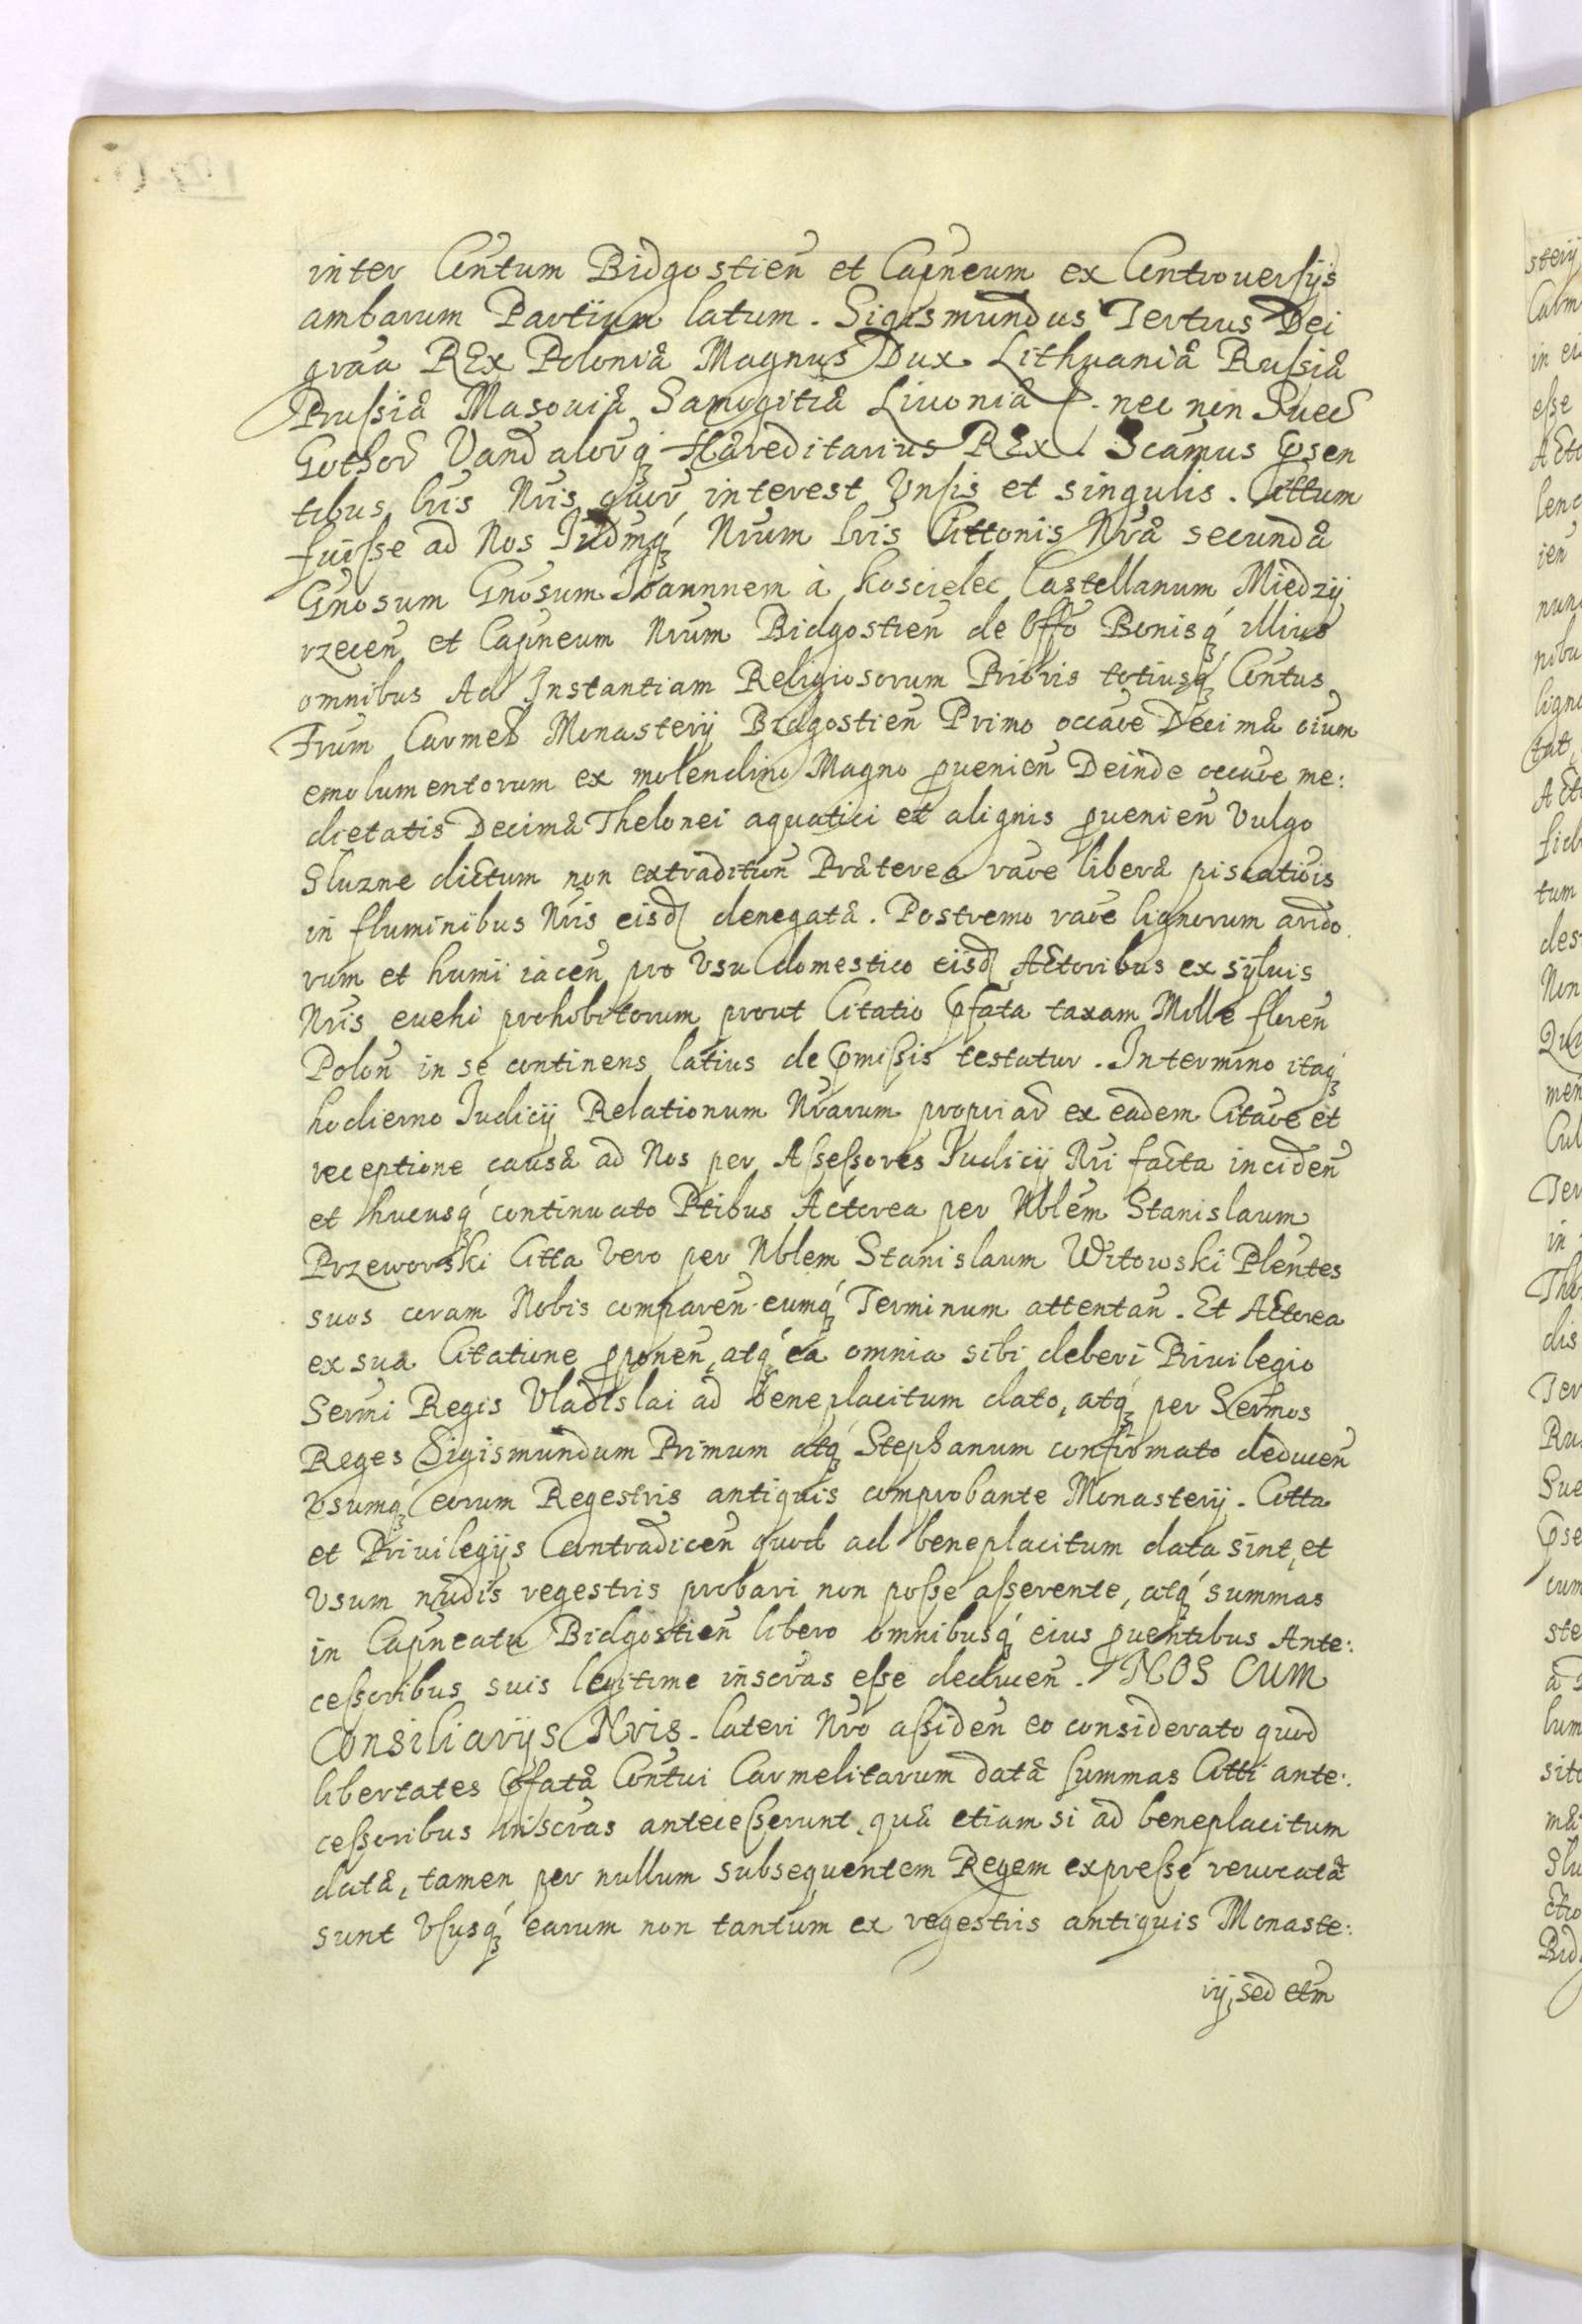 inter Contum Bidgostien̄ et Capneum ex Controuersijs
ambarum Partium latum. Sigismundus Tertius Dei
graa REx Poloniæ Magnus Dux Lithuaniæ Russiæ
Prussiæ Masouiæ Samogitiæ Liuoniæ nec non Suec
Gothor Vandalorq Hæreditarius REx. Scamus psen
tibus lris Nris quor interest Vnsis et singulis. Cittum
fuisse ad Nos Judmq Nrum lris Cittonis Nræ secundæ
Gnosum Gnosum Joannnem à Koscielec Castellanum Miedzij
rzecen et Capneum Nrum Bidgostien de Offo Bonisq illius
omnibus Ad Instantiam Religiosorum Prioris totiusq Contus
Frum Carmel Monasterij Bidgostien Primo occaoe Decimæ oium
emolumentorum ex molendino Magno puenien Deinde occaoe me:
dietatis Decimæ Thelonei aquatici et a lignis puenien Vulgo
Sluzne dictum non extradition Præterea raoe liberæ piscatiois
in fluminibus Nris eisd denegatæ. Postremo raoe lignorum arido
rum et humi iacen pro Vsu domestico eisd Actoribus ex syluis
Nris euehi prohobitorum prout Citatio pfata taxam Mille floren
Polon in se continens latius de pmissis testatur. In termino itaq
hodierno Judicij Relationum Nrarum propriar ex eadem Citaoe et
receptione causæ ad Nos per Assessores Judicij Nri facta inciden
et hucusq continuato Ptibus Actorea per Nblem Stanislaum
Przeworski Citta Vero per Nblem Stanislaum Witowski Plentes
suos coram Nobis comparen eumq Terminum attentan. Et Actorea
ex sua Citatione pponen, atq ea omnia sibi deberi Priuilegio
Sermi Regis Vladislai ad beneplacitum dato, atq per Sermos
Reges Sigismundum Primum atq Stephanum confirmato deducen
Vsumq eorum Regestris antiquis comprobante Monasterij. Citta
et Priuilegijs Contradicen quod ad beneplacitum data sint, et
Vsum nudis regestris probari non posse asserente, atq summas
in Capneatu Bidgostien libero omnibusq eius puentibus Ante:
cessoribus suis legitime inscras esse deducen. NOS CUM
Consiliarijs Nris lateri Nro assiden eo considerato quod
libertates pfatæ Contui Carmelitarum datæ summas Citti ante:
cessoribus inscras antecesserunt, quæ etiam si ad beneplacitum
datæ, tamen per nullum subsequentem Regem expresse reuocatæ
sunt Vsusq earum non tantum ex regestris antiquis Monaste:
rij, sed etm